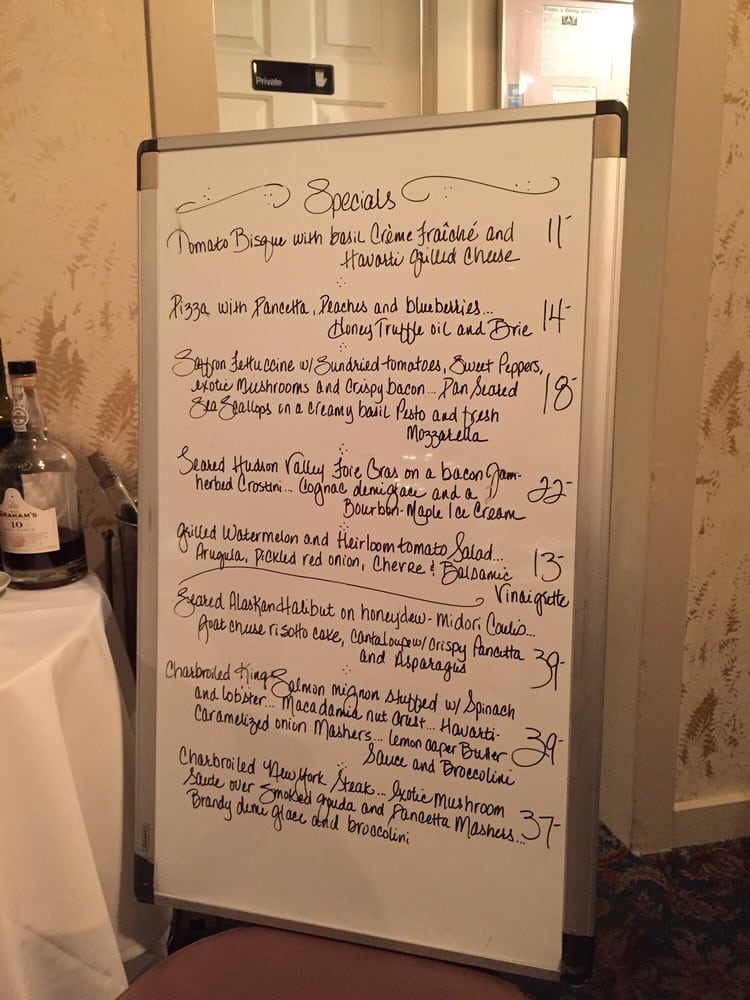 Private
Specials
Tomato Bisque with basil Crème Fraîché and 11-
Havarti Grilled Cheese
Pizza with Pancetta, Peaches and blueberries... 14-
Honey Truffle oil and Brie
Saffron Fettuccine w/ Sundried tomatoes, Sweet Peppers,
exotic Mushrooms and Crispy bacon... Pan Seared 18-
Sea Scallops in a creamy basil Pesto and fresh
Mozzarella
Seared Hudson Valley Foie Gras on a bacon Jam-
herbed Crostini... Cognac demiglace and a 22-
Bourbon-Maple Ice Cream
Grilled Watermelon and Heirloom tomato Salad...
Arugula, Pickled red onion, Chevre & Balsamic 13-
Vinaigrette
Seared Alaskan Halibut on honeydew-Midori Coulis...
Goat cheese risotto cake, Cantaloupe w/ crispy Pancetta 39-
and Asparagus
Charbroiled King Salmon mignon stuffed w/ Spinach
and lobster... Macadamia nut crust... Havarti-
Caramelized onion Mashers... lemon caper Butter 39-
Sauce and Broccolini
Charbroiled New York Steak... Exotic Mushroom
Saute over Smoked gouda and Pancetta Mashers... 37-
Brandy demi glace and broccolini
GRAHAM'S
10